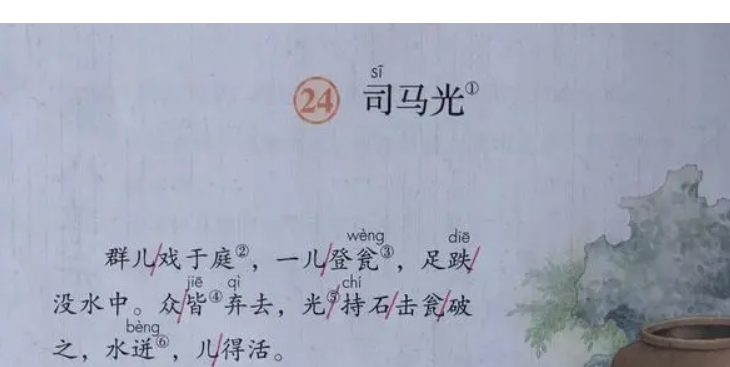 sī
24 司马光①
wèng diē
群儿/戏于庭②，一儿/登瓮③，足跌/
jiē qì chí
没水中。众/皆④弃去，光⑤/持石/击瓮/破
bèng
之，水迸⑥，儿/得活。